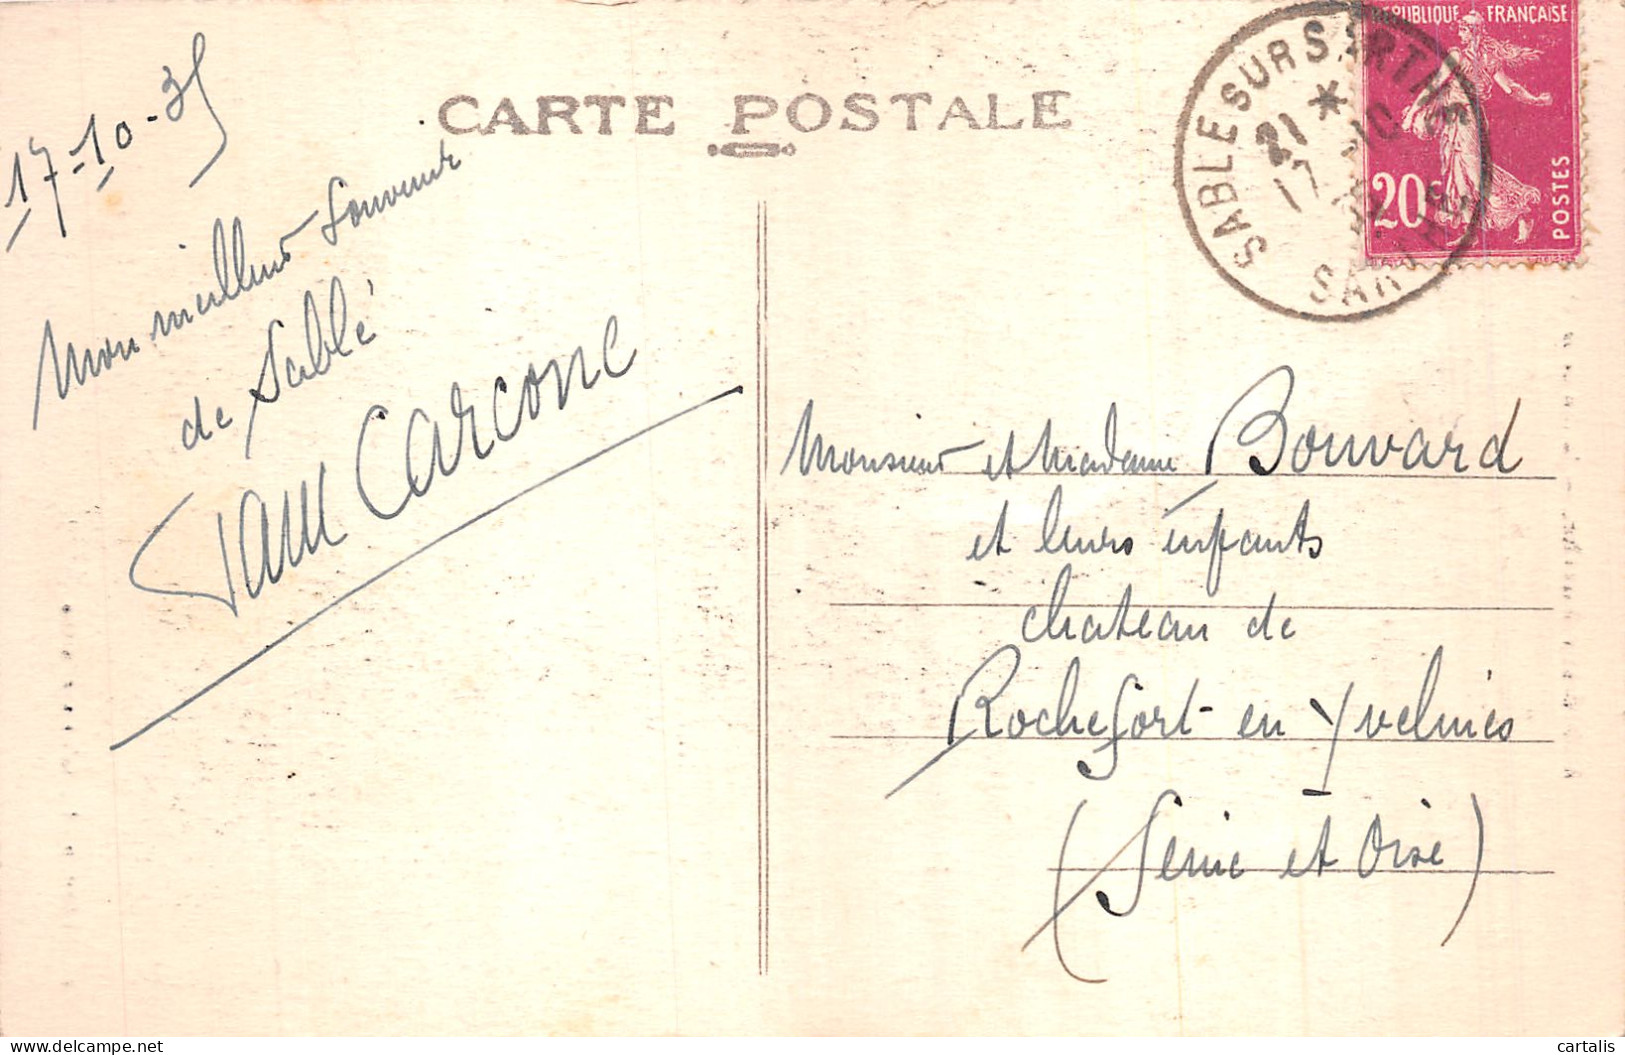 CARTE POSTALE
17-10-35
Mon meilleur souvenir
de Sablé
Paul Carcone
SABLE SUR SARTHE
21 * 10
17
SARTHE
REPUBLIQUE FRANÇAISE
20c
POSTES
Monsieur et Madame Bouvard
et leurs enfants
chateau de
Rochefort en Yvelines
(Seine et Oise)
cartalis